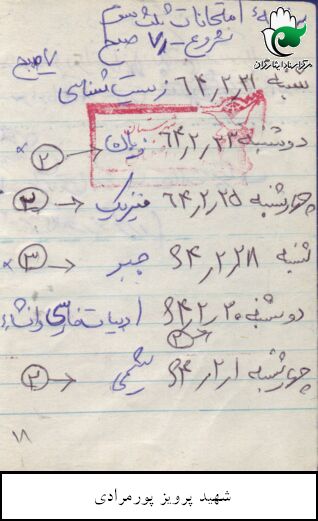 برنامه امتحانات ثلث سوم
شروع ۷/۸ صبح
مرکز اسناد ایثارگران
۷ صبح
شنبه ۶۴٫۲٫۲۱ زیست شناسی
دوشنبه ۶۴٫۲٫۲۳ زبان → ۲
چهارشنبه ۶۴٫۲٫۲۵ فیزیک → ۳
شنبه ۶۴٫۲٫۲۸ جبر → ۳
دوشنبه ۶۴٫۲٫۳۰ ادبیات فارسی و انشاء
→ ۲
چهارشنبه ۶۴٫۲٫۱ شیمی → ۲
۱۸
شهید پرویز پورمرادی